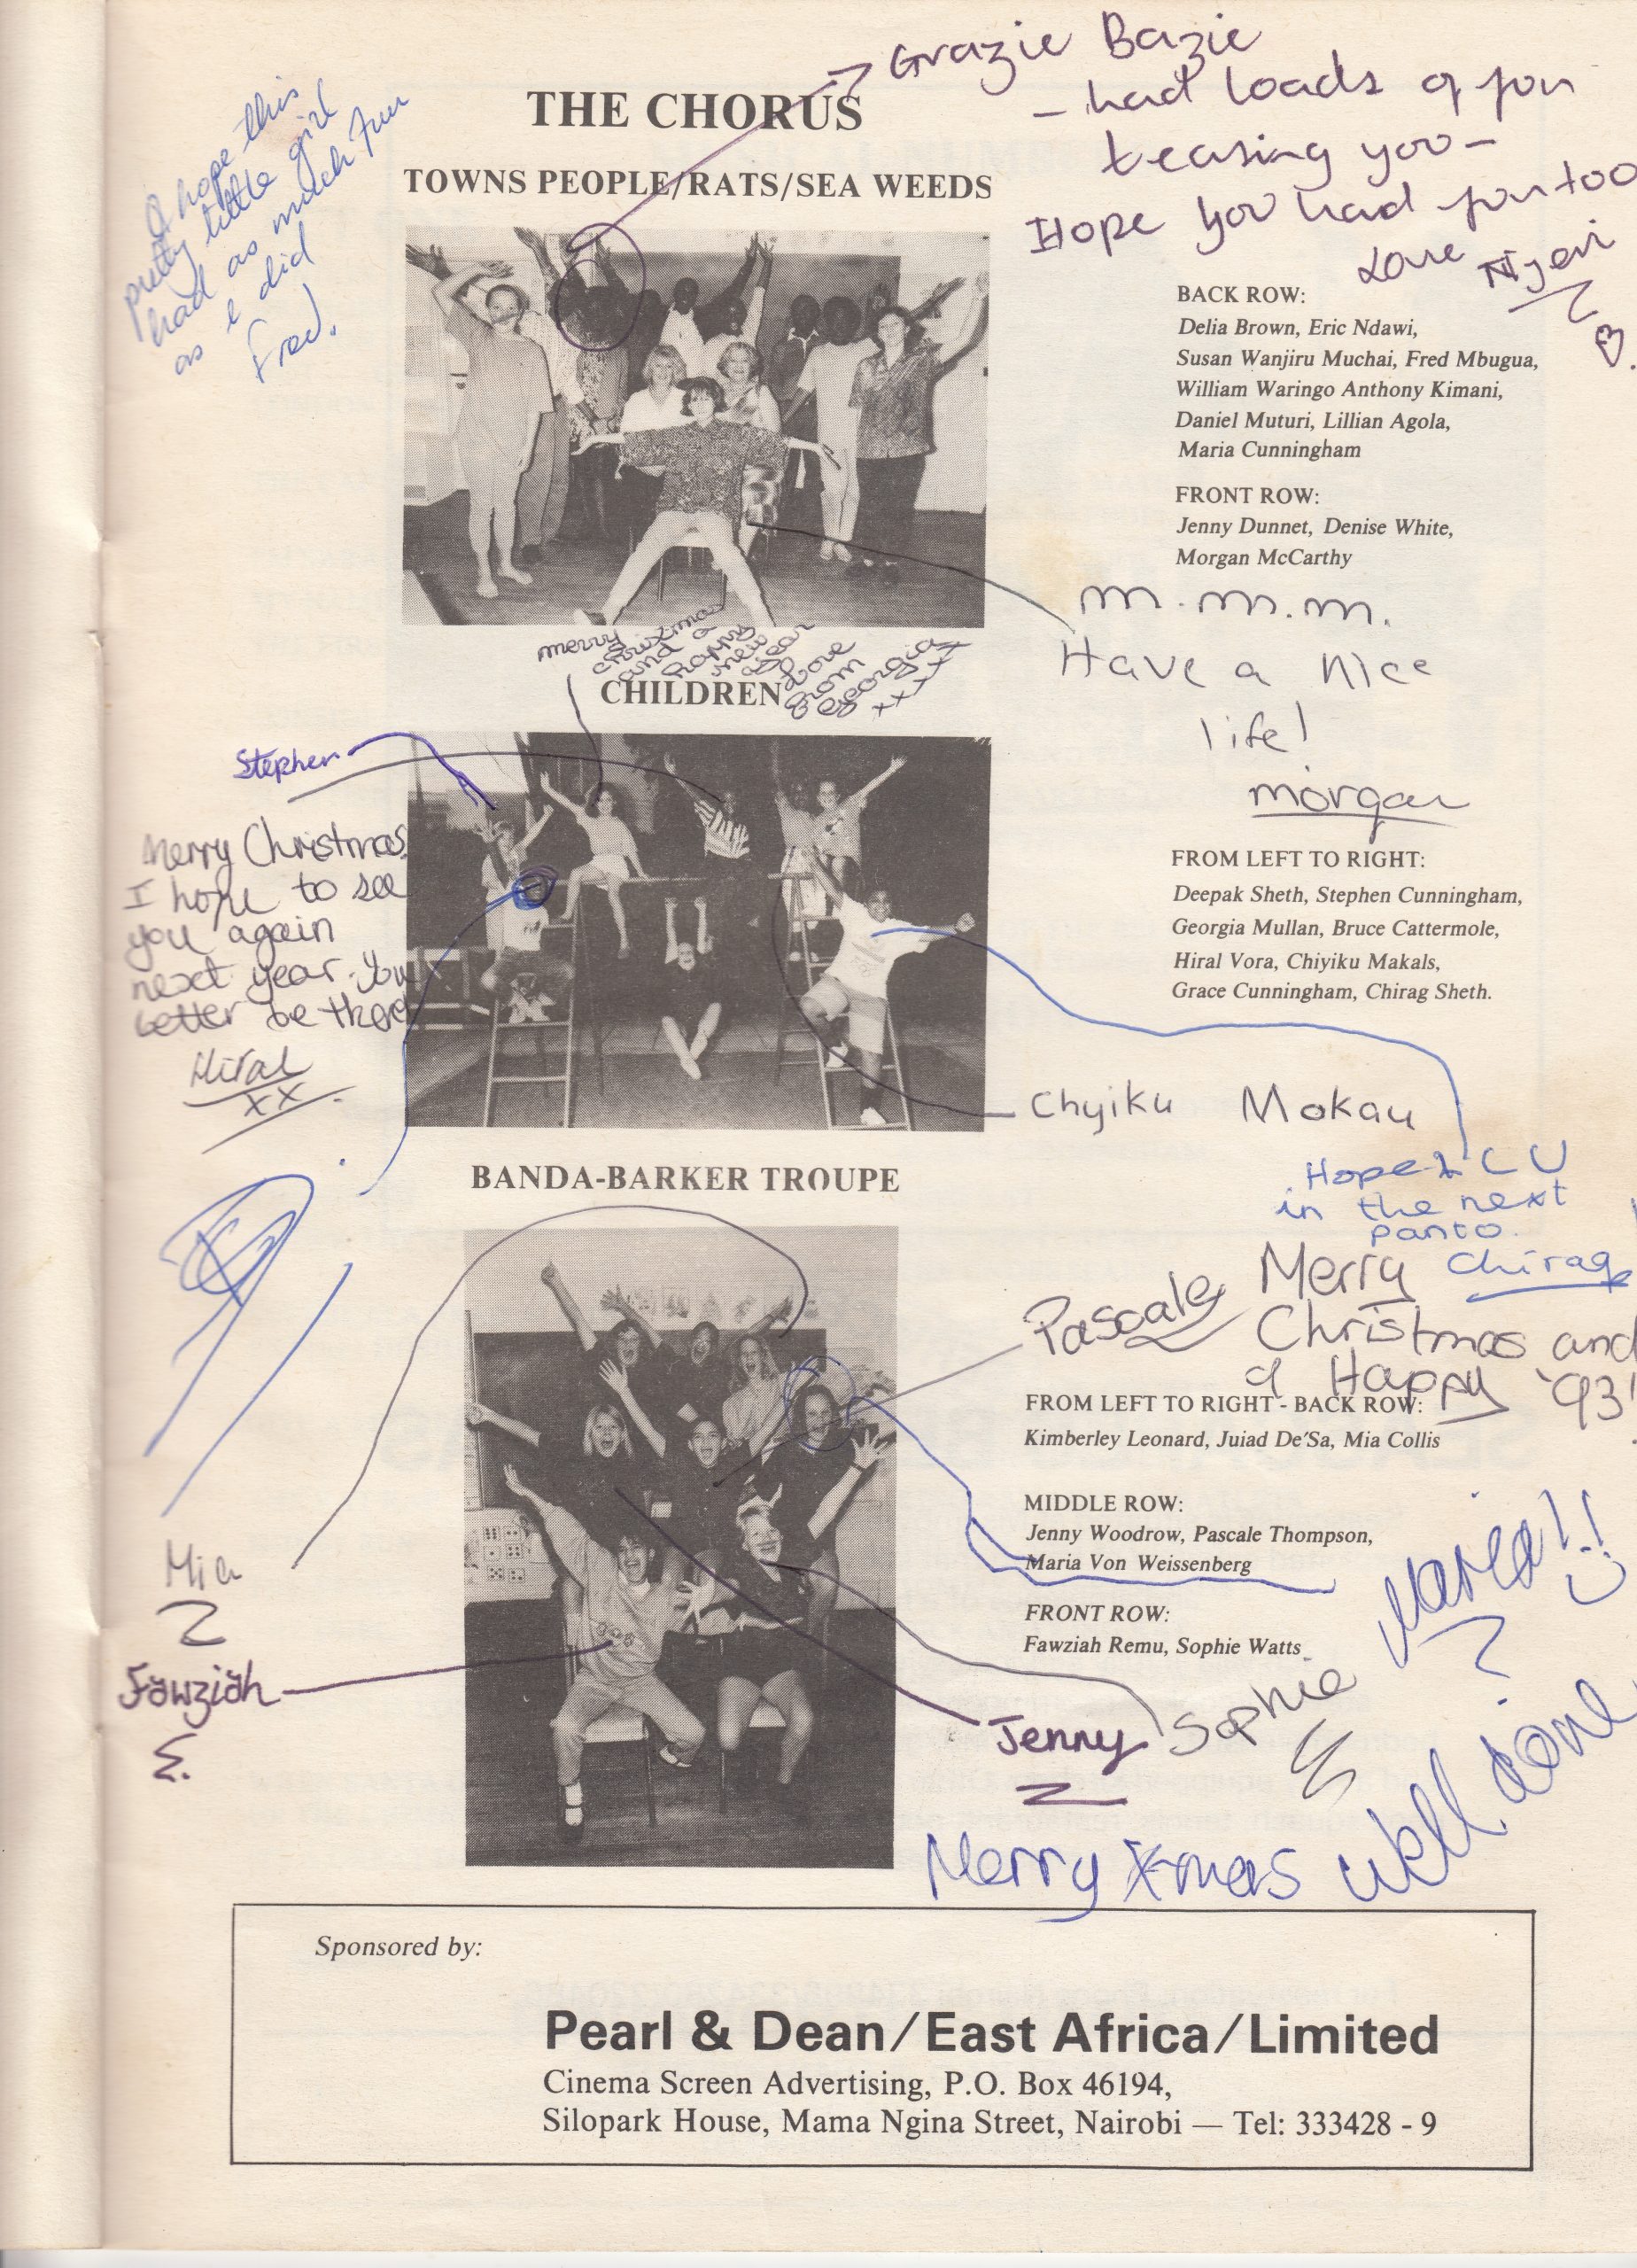 Grazie Bazie
- had loads of fun
teasing you -
Hope you had fun too
Love Njeri
I hope this
pretty little girl
had as much fun
as I did
Fred.
THE CHORUS
TOWNS PEOPLE/RATS/SEA WEEDS
BACK ROW:
Delia Brown, Eric Ndawi,
Susan Wanjiru Muchai, Fred Mbugua,
William Waringo Anthony Kimani,
Daniel Muturi, Lillian Agola,
Maria Cunningham
FRONT ROW:
Jenny Dunnet, Denise White,
Morgan McCarthy
m.m.m.
Have a Nice
life!
morgan
merry
christmas
and a
happy
new
year
Love
from
Georgia
xxxxx
CHILDREN
Stephen
Merry Christmas
I hope to see
you again
next year. You
better be there
Hiral
xx
FROM LEFT TO RIGHT:
Deepak Sheth, Stephen Cunningham,
Georgia Mullan, Bruce Cattermole,
Hiral Vora, Chiyiku Makals,
Grace Cunningham, Chirag Sheth.
Chyiku Mokau
Hope 2 C U
in the next
panto.
Chirag
BANDA-BARKER TROUPE
Pascale
Merry
Christmas and
a Happy '93!
FROM LEFT TO RIGHT - BACK ROW:
Kimberley Leonard, Juiad De'Sa, Mia Collis
MIDDLE ROW:
Jenny Woodrow, Pascale Thompson,
Maria Von Weissenberg
FRONT ROW:
Fawziah Remu, Sophie Watts
Mia
Fawziah
Jenny
Sophie
Maria!!
Merry X-mas well done
Sponsored by:
Pearl & Dean/East Africa/Limited
Cinema Screen Advertising, P.O. Box 46194,
Silopark House, Mama Ngina Street, Nairobi — Tel: 333428 - 9